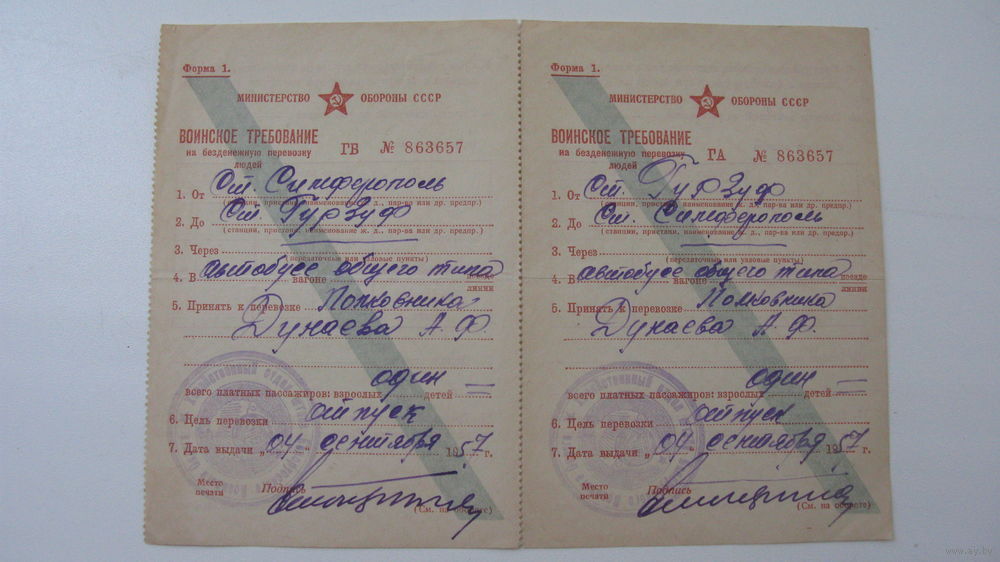 Форма 1.
МИНИСТЕРСТВО ОБОРОНЫ СССР
ВОИНСКОЕ ТРЕБОВАНИЕ
на безденежную перевозку людей
ГВ № 863657
1. От ст. Симферополь
(станции, пристани, наименование ж. д., пар-ва или др. предпр.)
2. До ст. Гурзуф
(станции, пристани, наименование ж. д., пар-ва или др. предпр.)
3. Через
(передаточные или узловые пункты)
4. В автобусе общего типа вагоне поезде
линии
5. Принять к перевозке Полковника
Дунаева А. Ф.
всего платных пассажиров: взрослых один детей =
6. Цель перевозки отпуск
7. Дата выдачи „04" сентября 1957 г.
Место печати
Подпись
(См. на обороте)
Форма 1.
МИНИСТЕРСТВО ОБОРОНЫ СССР
ВОИНСКОЕ ТРЕБОВАНИЕ
на безденежную перевозку людей
ГА № 863657
1. От ст. Гурзуф
(станции, пристани, наименование ж. д., пар-ва или др. предпр.)
2. До ст. Симферополь
(станции, пристани, наименование ж. д., пар-ва или др. предпр.)
3. Через
(передаточные или узловые пункты)
4. В автобусе общего типа вагоне поезде
линии
5. Принять к перевозке Полковника
Дунаева А. Ф.
всего платных пассажиров: взрослых один детей =
6. Цель перевозки отпуск
7. Дата выдачи „04" сентября 1957 г.
Место печати
Подпись
(См. на обороте)
www.ay.by